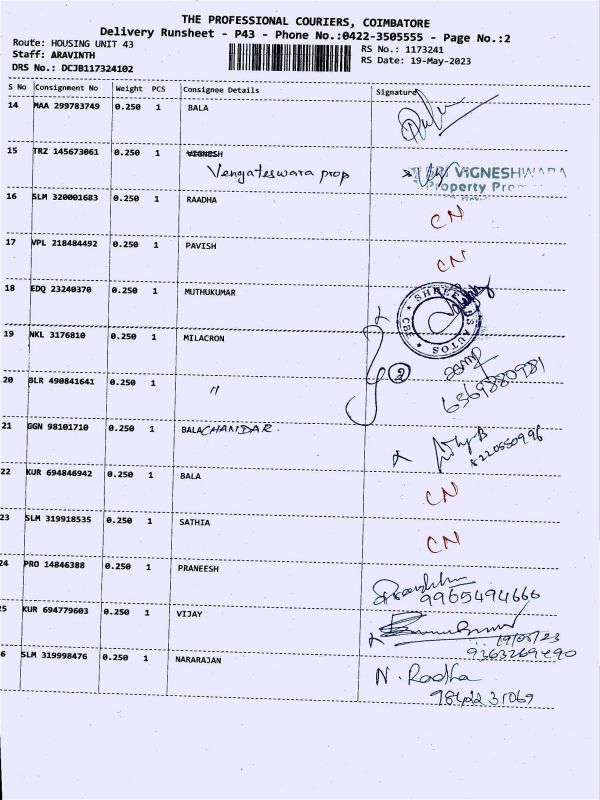 THE PROFESSIONAL COURIERS, COIMBATORE
Delivery Runsheet - P43 - Phone No.:0422-3505555 - Page No.:2
Route: HOUSING UNIT 43
RS No.: 1173241
Staff: ARAVINTH
RS Date: 19-May-2023
DRS No.: DCJB117324102
S No Consignment No Weight PCS Consignee Details Signature
14 MAA 299783749 0.250 1 BALA
15 TRZ 145673061 0.250 1 VIGNESH
Vengateswara prop
VIGNESHWARA
Property
16 SLM 320001683 0.250 1 RAADHA CN
17 VPL 218484492 0.250 1 PAVISH CN
18 EDQ 23240370 0.250 1 MUTHUKUMAR
SHREE AUTOS CBE
19 NKL 3176810 0.250 1 MILACRON
2
20 BLR 490841641 0.250 1 "
6369880981
21 GGN 98101710 0.250 1 BALACHANDAR
8220550996
22 KUR 694846942 0.250 1 BALA CN
23 SLM 319918535 0.250 1 SATHIA CN
24 PRO 14846388 0.250 1 PRANEESH
9965494666
25 KUR 694779603 0.250 1 VIJAY
19/05/23
6 SLM 319998476 0.250 1 NARARAJAN N. Radha